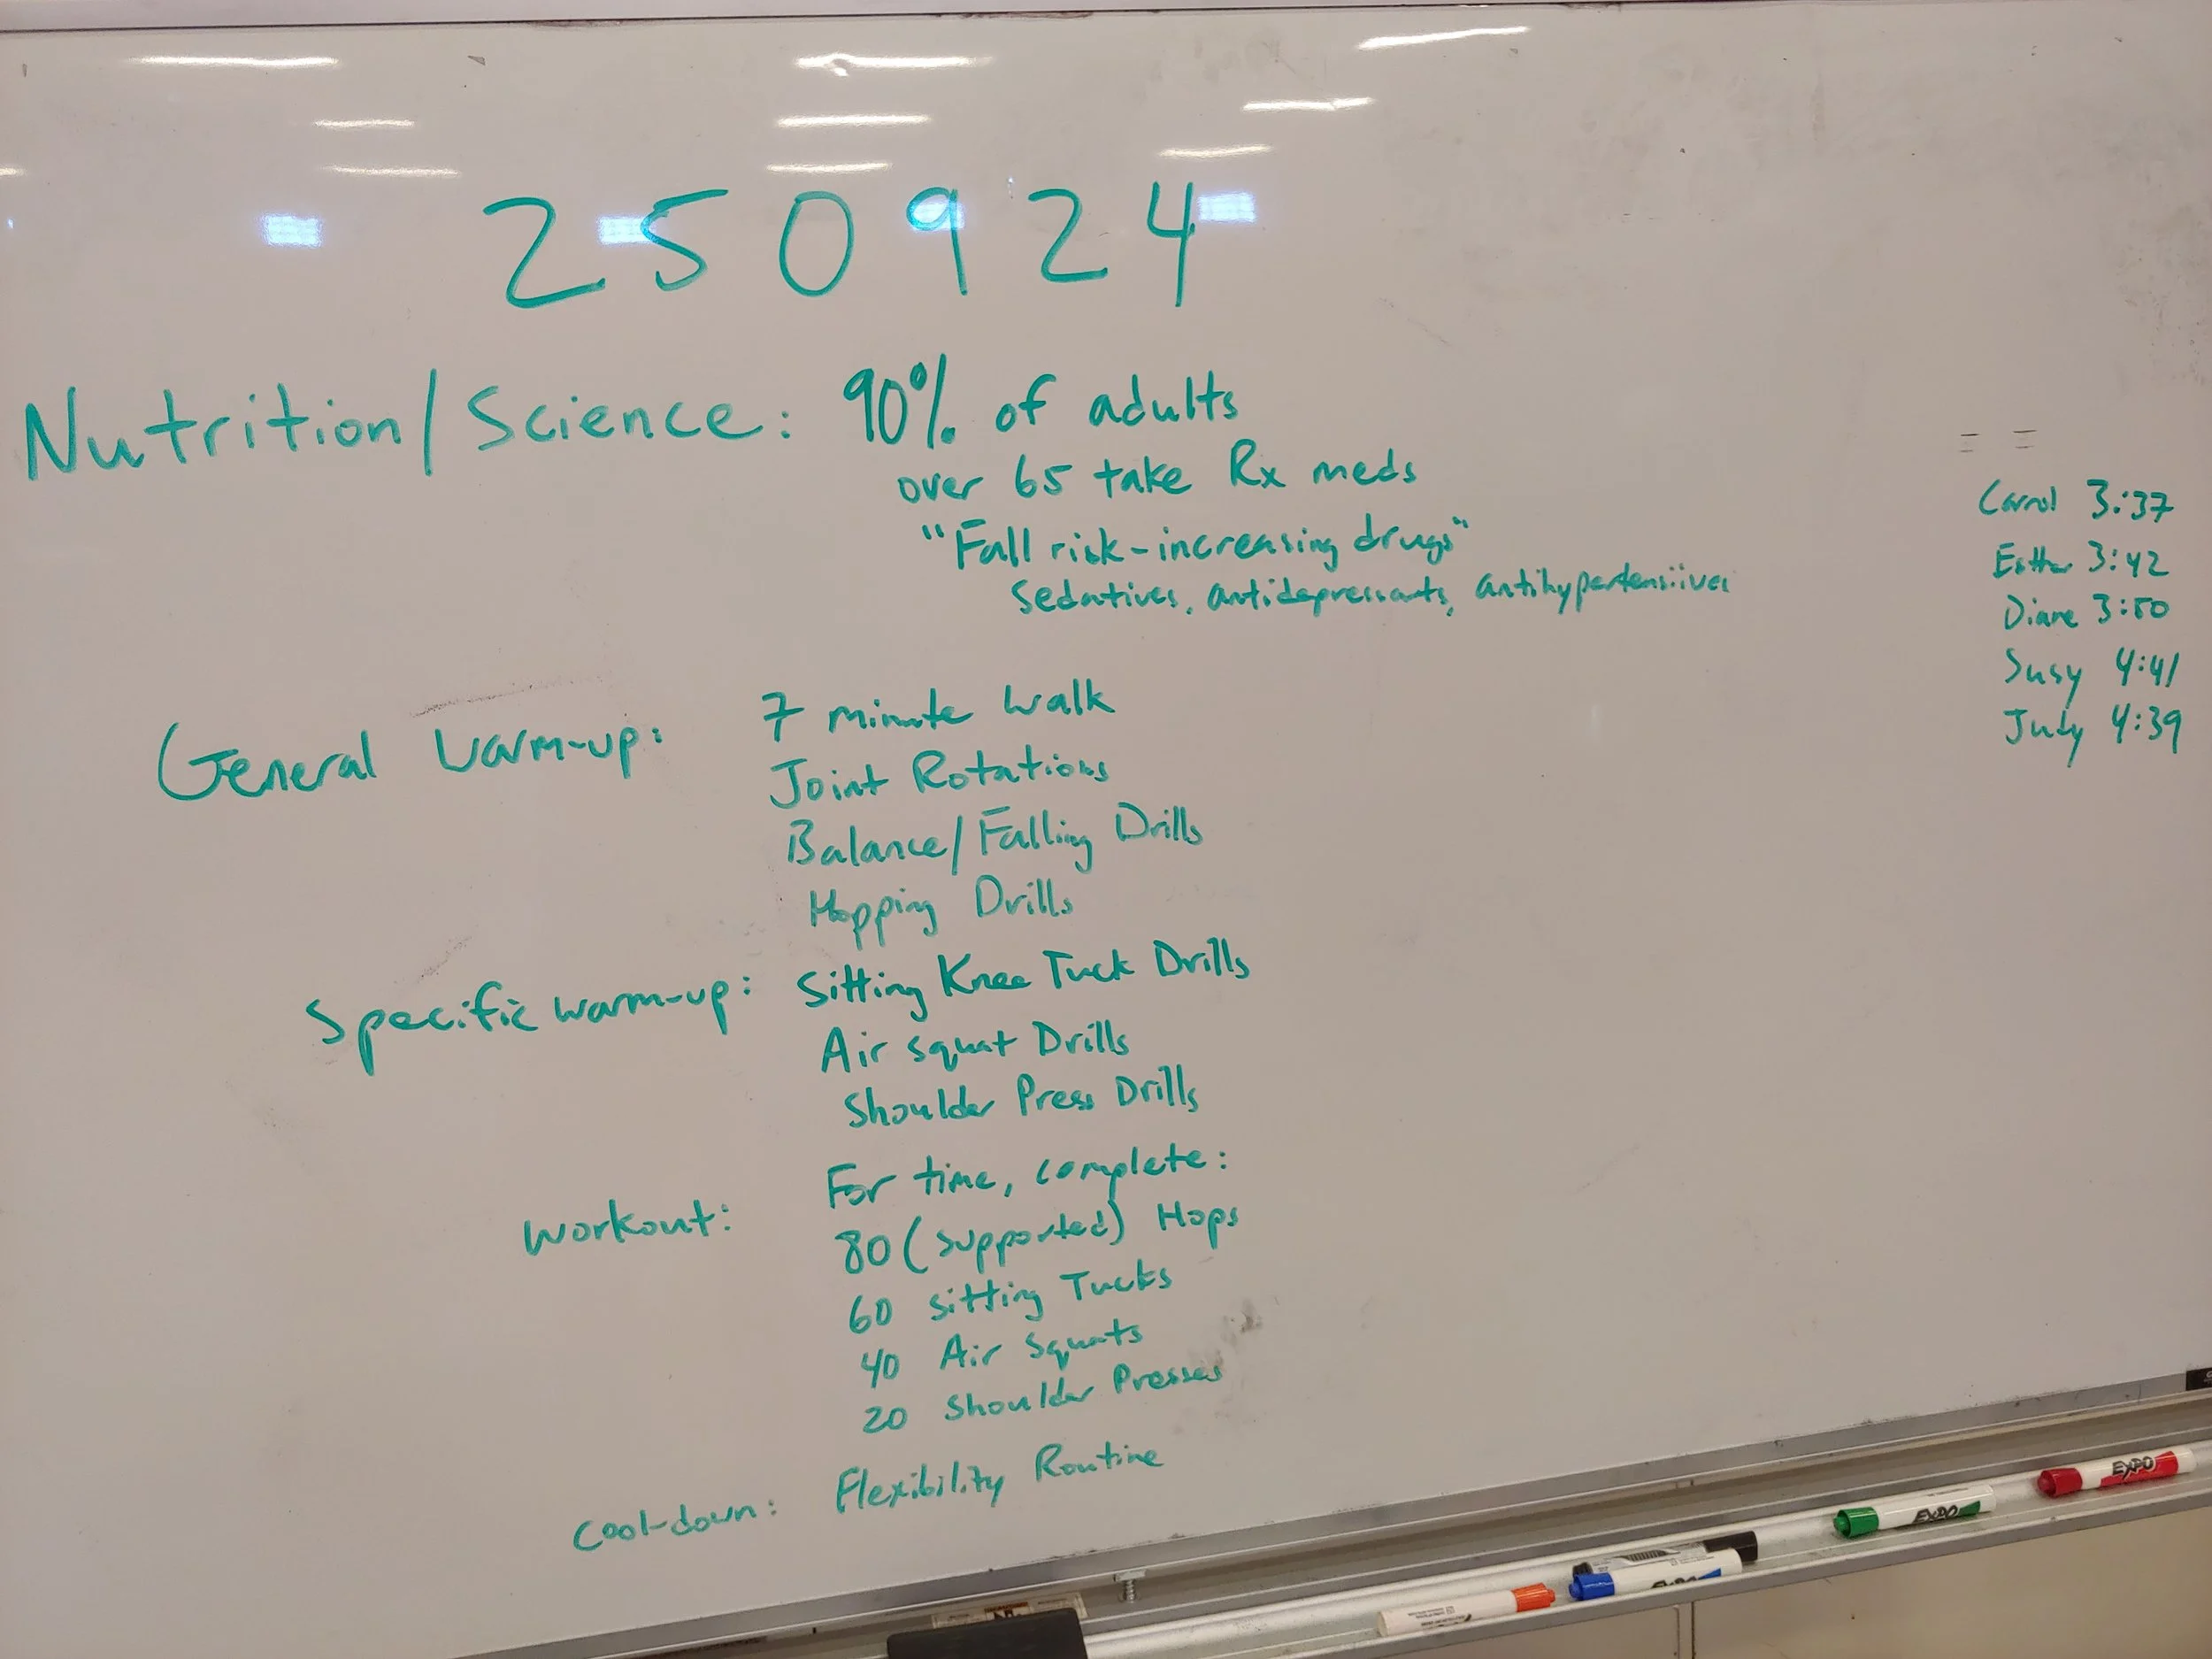 250924
Nutrition/Science: 90% of adults
over 65 take Rx meds
"Fall risk-increasing drugs"
Sedatives, antidepressants, antihypertensives
General Warm-up: 7 minute Walk
Joint Rotations
Balance/Falling Drills
Hopping Drills
Specific Warm-up: Sitting Knee Tuck Drills
Air Squat Drills
Shoulder Press Drills
Workout: For time, complete:
80 (supported) Hops
60 Sitting Tucks
40 Air Squats
20 Shoulder Presses
Cool-down: Flexibility Routine
Carol 3:37
Esther 3:42
Diane 3:50
Susy 4:41
Judy 4:39
EXPO
EXPO
EXPO